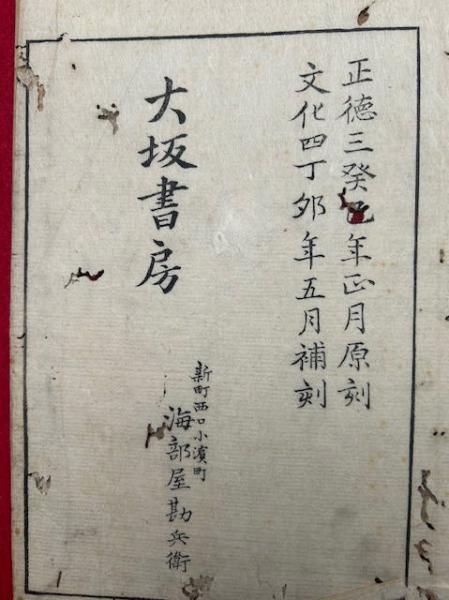 正徳三癸巳年正月原刻
文化四丁卯年五月補刻
大坂書房
新町西口小濱町
海部屋勘兵衛